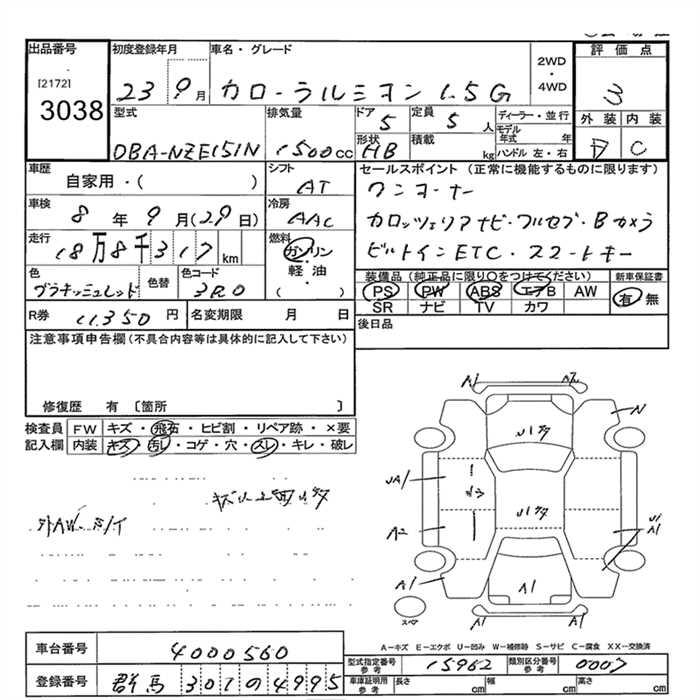 出品番号 初度登録年月 車名・グレード 2WD・4WD 評価点
[2172] 3038 23 9月 カローラルミヨン 1.5G 3
型式 排気量 ドア 5 定員 5人 ディーラー・並行 外装 内装
DBA-NZE151N 1500cc 形状 HB 積載 kg モデル年式 年 ハンドル 左・右 C
車歴 自家用・( ) シフト AT セールスポイント(正常に機能するものに限ります)
ワンオーナー
車検 8年9月(29日) 冷房 AAC カロッツェリアナビ・フルセブ・Bカメラ
走行 18万8千317km 燃料 ガソリン・軽油( ) ビルトインETC・スマートキー
色 色替 色コード 3R0 装備品(純正品に限り○をつけてください) 新車保証書
PS PW ABS エアB AW 有 無
SR ナビ TV カワ
R券 11,350円 名変期限 月 日 後日品
注意事項申告欄(不具合内容等は具体的に記入して下さい)
修復歴 有〔箇所 〕
検査員 FW キズ・飛石・ヒビ割・リペア跡・×要
記入欄 内装 キズ・汚レ・コゲ・穴・スレ・キレ・破レ
A1 N
A2 A1
A1 A1
A-キズ E-エクボ U-凹み W-補修跡 S-サビ C-腐食 XX-交換済
車台番号 4000560 型式指定番号 参考 15962 類別区分番号 参考 0007
登録番号 群馬 301 の 4995 車庫証明用 参考 長さ cm 幅 cm 高さ cm